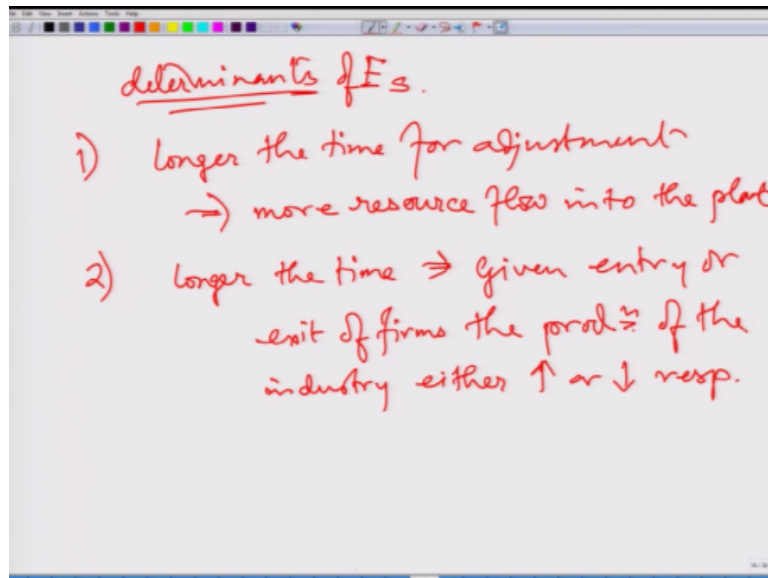 determinants of Es.
1) longer the time for adjustment
→ more resource flow into the plant
2) longer the time ⇒ Given entry or
exit of firms the prodⁿ of the
industry either ↑ or ↓ resp.